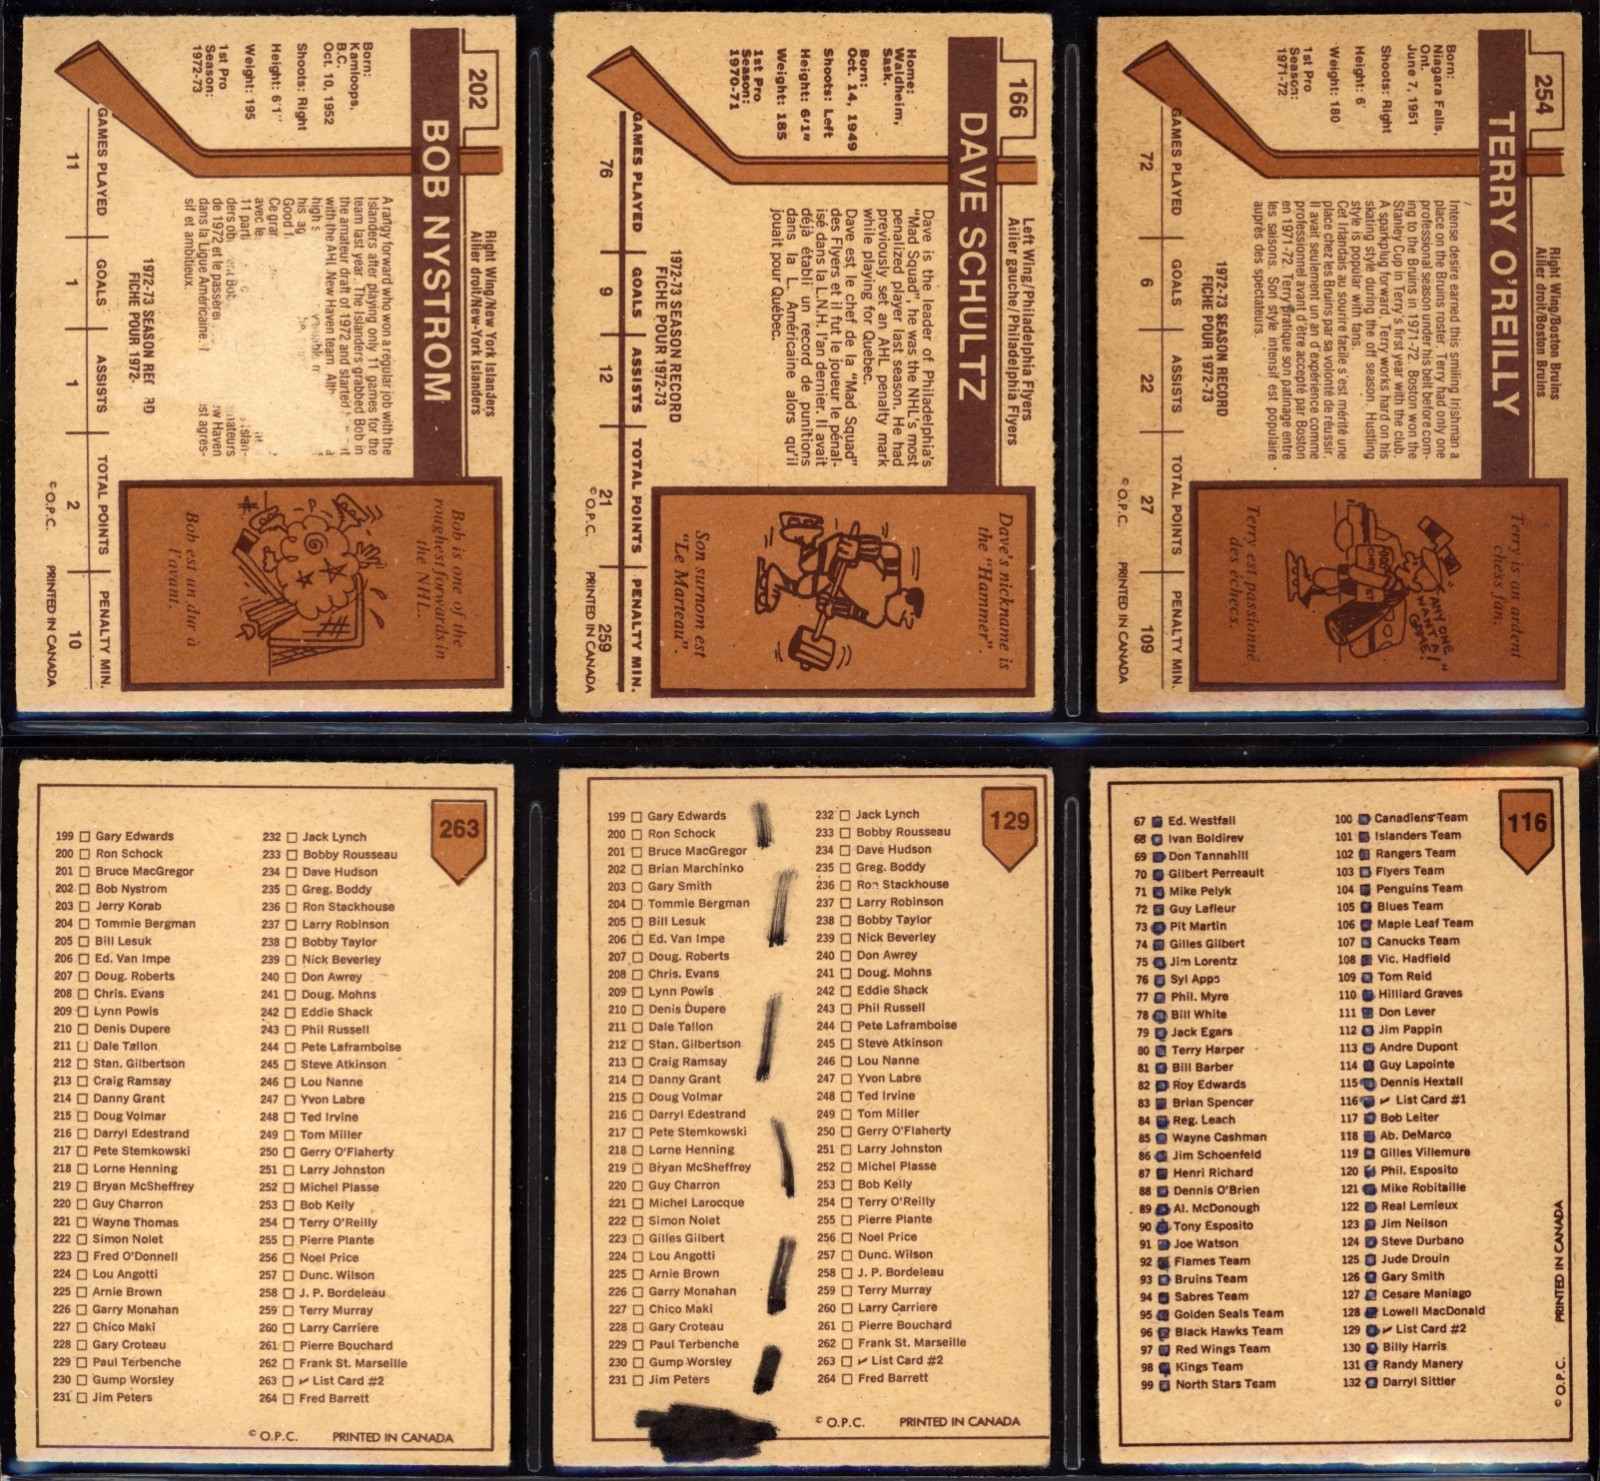 202
BOB NYSTROM
Right Wing/New York Islanders
Ailier droit/New-York Islanders
Born:
Kamloops,
B.C.
Oct. 10, 1952
Shoots: Right
Height: 6'1"
Weight: 195
1st Pro
Season:
1972-73
A rangy forward who won a regular job with the
Islanders after playing only 11 games for the
team last year. The Islanders grabbed Bob in
the amateur draft of 1972 and started
with the AHL New Haven team.
high
his ag
Good
Ce
avec le
11 parti
ders
de 1972 et le
dans la Ligue Américaine.
sif et ambitieux.
1972-73 SEASON
FICHE POUR 1972-
GAMES PLAYED GOALS ASSISTS TOTAL POINTS PENALTY MIN.
11 1 1 2 10
© O.P.C. PRINTED IN CANADA
Bob is one of the
roughest forwards in
the NHL.
Bob est un dur à
l'avant.
166
DAVE SCHULTZ
Left Wing/Philadelphia Flyers
Ailier gauche/Philadelphia Flyers
Home:
Waldheim,
Sask.
Born:
Oct. 14, 1949
Shoots: Left
Height: 6'1"
Weight: 185
1st Pro
Season:
1970-71
Dave is the leader of Philadelphia's
"Mad Squad", he was the NHL's most
penalized player last season. He had
previously set an AHL penalty mark
while playing for Quebec.
Dave est le chef de la "Mad Squad"
des Flyers et il fut le joueur le pénal-
isé dans la L.N.H. l'an dernier. Il avait
déjà établi un record de punitions
dans la L. Américaine alors qu'il
jouait pour Québec.
1972-73 SEASON RECORD
FICHE POUR 1972-73
GAMES PLAYED GOALS ASSISTS TOTAL POINTS PENALTY MIN.
76 9 12 21 259
© O.P.C. PRINTED IN CANADA
Dave's nickname is
the "Hammer".
Son surnom est
"Le Marteau".
254
TERRY O'REILLY
Right Wing/Boston Bruins
Ailier droit/Boston Bruins
Born:
Niagara Falls,
Ont.
June 7, 1951
Shoots: Right
Height: 6'
Weight: 180
1st Pro
Season:
1971-72
Intense desire earned this smiling Irishman a
place on the Bruins roster. Terry had only one
professional season under his belt before com-
ing to the Bruins in 1971-72. Boston won the
Stanley Cup in Terry's first year with the club.
A sparkplug forward, Terry works hard on his
skating style during the off season. Hustling
style is popular with fans.
Cet Irlandais au sourire facile s'est mérité une
place chez les Bruins par sa volonté de réussir.
Il avait seulement un an d'expérience comme
professionnel avant d'être accepté par Boston
en 1971-72. Terry pratique son patinage entre
les saisons. Son style intensif est populaire
auprès des spectateurs.
1972-73 SEASON RECORD
FICHE POUR 1972-73
GAMES PLAYED GOALS ASSISTS TOTAL POINTS PENALTY MIN.
72 6 22 27 109
© O.P.C. PRINTED IN CANADA
Terry is an ardent
chess fan.
"ANYONE
WANT A
GAME!"
Terry est passionné
des échecs.
263
199 Gary Edwards
200 Ron Schock
201 Bruce MacGregor
202 Bob Nystrom
203 Jerry Korab
204 Tommie Bergman
205 Bill Lesuk
206 Ed. Van Impe
207 Doug. Roberts
208 Chris. Evans
209 Lynn Powis
210 Denis Dupere
211 Dale Tallon
212 Stan. Gilbertson
213 Craig Ramsay
214 Danny Grant
215 Doug Volmar
216 Darryl Edestrand
217 Pete Stemkowski
218 Lorne Henning
219 Bryan McSheffrey
220 Guy Charron
221 Wayne Thomas
222 Simon Nolet
223 Fred O'Donnell
224 Lou Angotti
225 Arnie Brown
226 Garry Monahan
227 Chico Maki
228 Gary Croteau
229 Paul Terbenche
230 Gump Worsley
231 Jim Peters
232 Jack Lynch
233 Bobby Rousseau
234 Dave Hudson
235 Greg. Boddy
236 Ron Stackhouse
237 Larry Robinson
238 Bobby Taylor
239 Nick Beverley
240 Don Awrey
241 Doug. Mohns
242 Eddie Shack
243 Phil Russell
244 Pete Laframboise
245 Steve Atkinson
246 Lou Nanne
247 Yvon Labre
248 Ted Irvine
249 Tom Miller
250 Gerry O'Flaherty
251 Larry Johnston
252 Michel Plasse
253 Bob Kelly
254 Terry O'Reilly
255 Pierre Plante
256 Noel Price
257 Dunc. Wilson
258 J. P. Bordeleau
259 Terry Murray
260 Larry Carriere
261 Pierre Bouchard
262 Frank St. Marseille
263 ✓ List Card #2
264 Fred Barrett
© O.P.C. PRINTED IN CANADA
129
199 Gary Edwards
200 Ron Schock
201 Bruce MacGregor
202 Brian Marchinko
203 Gary Smith
204 Tommie Bergman
205 Bill Lesuk
206 Ed. Van Impe
207 Doug. Roberts
208 Chris. Evans
209 Lynn Powis
210 Denis Dupere
211 Dale Tallon
212 Stan. Gilbertson
213 Craig Ramsay
214 Danny Grant
215 Doug Volmar
216 Darryl Edestrand
217 Pete Stemkowski
218 Lorne Henning
219 Bryan McSheffrey
220 Guy Charron
221 Michel Larocque
222 Simon Nolet
223 Gilles Gilbert
224 Lou Angotti
225 Arnie Brown
226 Garry Monahan
227 Chico Maki
228 Gary Croteau
229 Paul Terbenche
230 Gump Worsley
231 Jim Peters
232 Jack Lynch
233 Bobby Rousseau
234 Dave Hudson
235 Greg. Boddy
236 Ron Stackhouse
237 Larry Robinson
238 Bobby Taylor
239 Nick Beverley
240 Don Awrey
241 Doug. Mohns
242 Eddie Shack
243 Phil Russell
244 Pete Laframboise
245 Steve Atkinson
246 Lou Nanne
247 Yvon Labre
248 Ted Irvine
249 Tom Miller
250 Gerry O'Flaherty
251 Larry Johnston
252 Michel Plasse
253 Bob Kelly
254 Terry O'Reilly
255 Pierre Plante
256 Noel Price
257 Dunc. Wilson
258 J. P. Bordeleau
259 Terry Murray
260 Larry Carriere
261 Pierre Bouchard
262 Frank St. Marseille
263 ✓ List Card #2
264 Fred Barrett
© O.P.C. PRINTED IN CANADA
116
67 Ed. Westfall
68 Ivan Boldirev
69 Don Tannahill
70 Gilbert Perreault
71 Mike Pelyk
72 Guy Lafleur
73 Pit Martin
74 Gilles Gilbert
75 Jim Lorentz
76 Syl Apps
77 Phil. Myre
78 Bill White
79 Jack Egars
80 Terry Harper
81 Bill Barber
82 Roy Edwards
83 Brian Spencer
84 Reg. Leach
85 Wayne Cashman
86 Jim Schoenfeld
87 Henri Richard
88 Dennis O'Brien
89 Al. McDonough
90 Tony Esposito
91 Joe Watson
92 Flames Team
93 Bruins Team
94 Sabres Team
95 Golden Seals Team
96 Black Hawks Team
97 Red Wings Team
98 Kings Team
99 North Stars Team
100 Canadiens Team
101 Islanders Team
102 Rangers Team
103 Flyers Team
104 Penguins Team
105 Blues Team
106 Maple Leaf Team
107 Canucks Team
108 Vic. Hadfield
109 Tom Reid
110 Hilliard Graves
111 Don Lever
112 Jim Pappin
113 Andre Dupont
114 Guy Lapointe
115 Dennis Hextall
116 ✓ List Card #1
117 Bob Leiter
118 Ab. DeMarco
119 Gilles Villemure
120 Phil. Esposito
121 Mike Robitaille
122 Real Lemieux
123 Jim Neilson
124 Steve Durbano
125 Jude Drouin
126 Gary Smith
127 Cesare Maniago
128 Lowell MacDonald
129 ✓ List Card #2
130 Billy Harris
131 Randy Manery
132 Darryl Sittler
© O.P.C. PRINTED IN CANADA